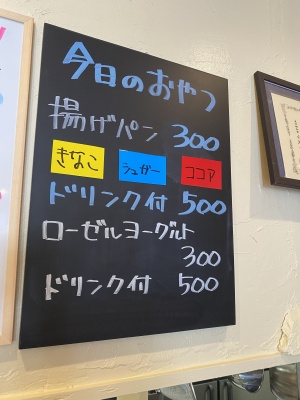 今日のおやつ
揚げパン 300
きなこ シュガー ココア
ドリンク付 500
ローゼルヨーグルト
300
ドリンク付 500